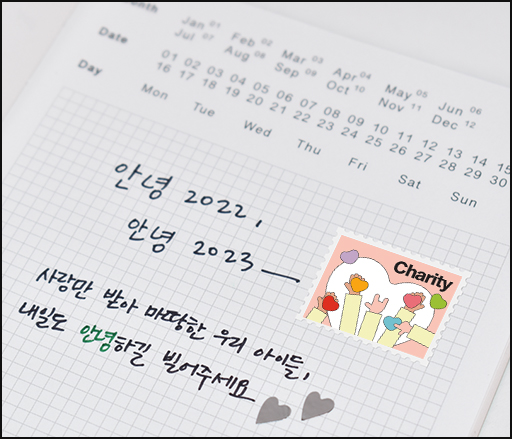 Month Jan 01 Feb 02 Mar 03 Apr 04 May 05 Jun 06
Jul 07 Aug 08 Sep 09 Oct 10 Nov 11 Dec 12
Date 01 02 03 04 05 06 07 08 09 10 11 12 13 14 15
16 17 18 19 20 21 22 23 24 25 26 27 28 29 30
Day Mon Tue Wed Thu Fri Sat Sun
안녕 2022,
안녕 2023
Charity
사랑만 받아 마땅한 우리 아이들,
내일도 안녕하길 빌어주세요